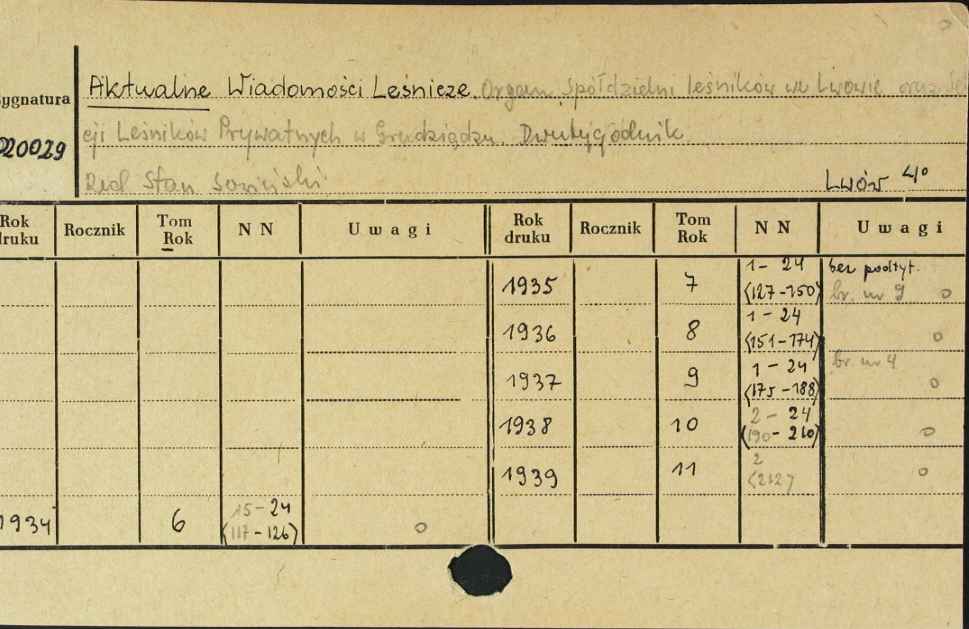 Sygnatura
020029
Aktualne Wiadomości Leśnicze. Organ Spółdzielni leśników we Lwowie oraz
cji Leśników Prywatnych w Grudziądzu. Dwutygodnik
Red Stan
Lwów 4°
Rok druku Rocznik Tom Rok NN Uwagi Rok druku Rocznik Tom Rok NN Uwagi
1935 7 1-24 (127-150) bez podtyt. br. nr 9 o
1936 8 1-24 (151-174) o
1937 9 1-24 (175-188) br. nr 4 o
1938 10 2-24 (190-210) o
1939 11 2 (212) o
1934 6 15-24 (117-126) o